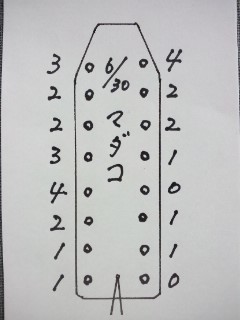 3 6/30 4
2 2
2 マ 2
3 ダ 1
4 コ 0
2 1
1 1
1 0